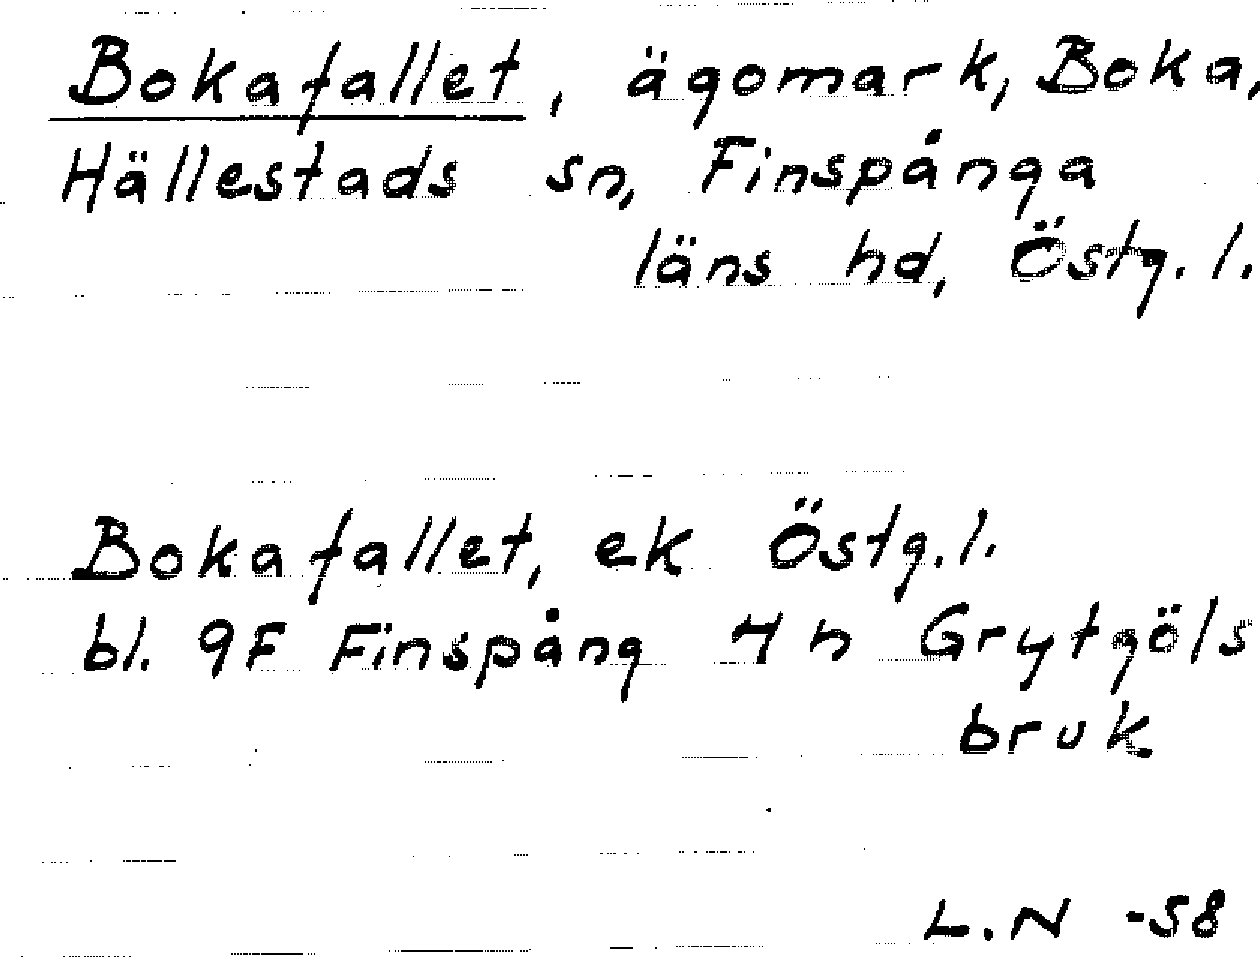 Bokafallet, ägomark, Boka,
Hällestads sn, Finspånga
läns hd, Östg. l.
Bokafallet, ek Östg. l.
bl. 9F Finspång 4h Grytgöls
bruk
L.N -58